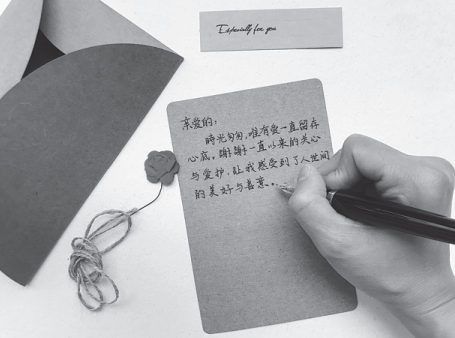 Especially for you
亲爱的，
時光匆匆，唯有爱一直留存
心底。谢谢一直以来的关心
与爱护，让我感受到了人世间
的美好与善意..